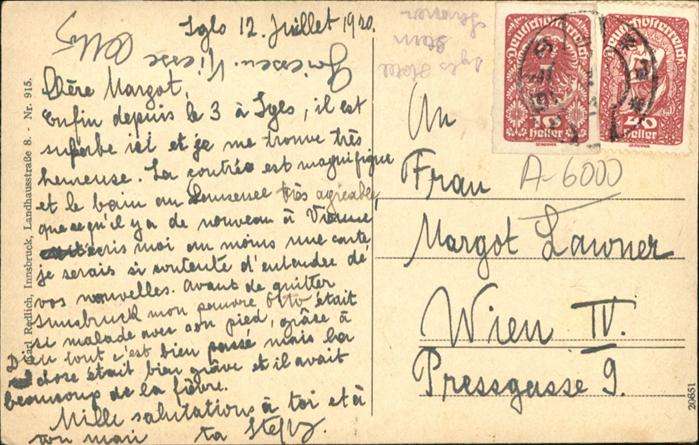 Igls 12. Juillet 1920.
Chère Margot,
Enfin depuis le 3 à Igls, il est
superbe ici et je me trouve très
heureuse. La contrée est magnifique
et le bain au Lansersee très agréable
que ce qu'il y a de nouveau à Vienne,
écris moi au moins une carte
je serais si contente d'entendre de
vos nouvelles. Avant de quitter
Innsbruck mon pauvre Otto était
si malade avec son pied, grâce à
Dieu tout c'est bien passé mais la
chose était bien grâve et il avait
beaucoup de la fièvre.
Mille salutations à toi et à
ton mari ta
Carl Redlich, Innsbruck, Landhausstraße 8. - Nr. 915.
Deutschösterreich
10
Heller
Deutschösterreich
Heller
A-6000
An
Frau
Margot Lawner
Wien IV.
Pressgasse 9.
20851